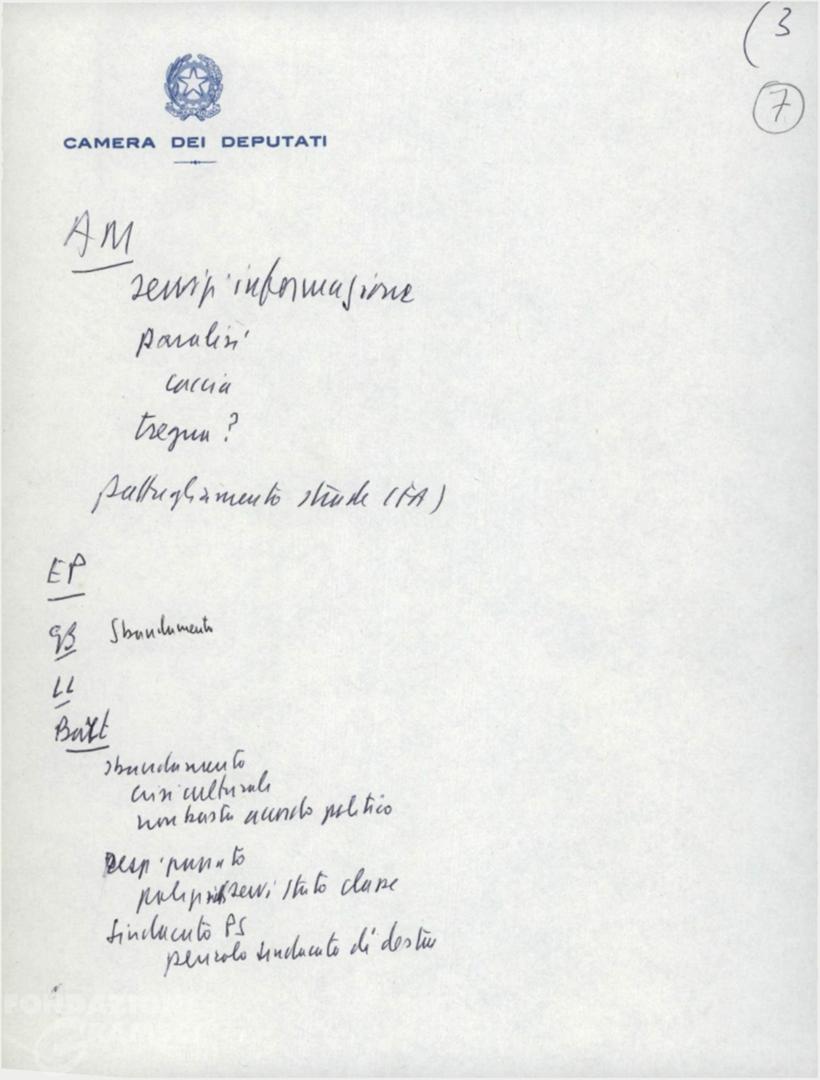 (3
7
CAMERA DEI DEPUTATI
AM
servizi informazione
paralisi
caccia
tregua?
pattugliamento strade (FA)
EP
GB Sbandamento
LL
Batt
sbandamento
crisi culturale
non basta accordo politico
resp. passato
servi stato classe
Sindacato PS
pericolo sindacato di destra
FONDAZIONE
GRAMSCI